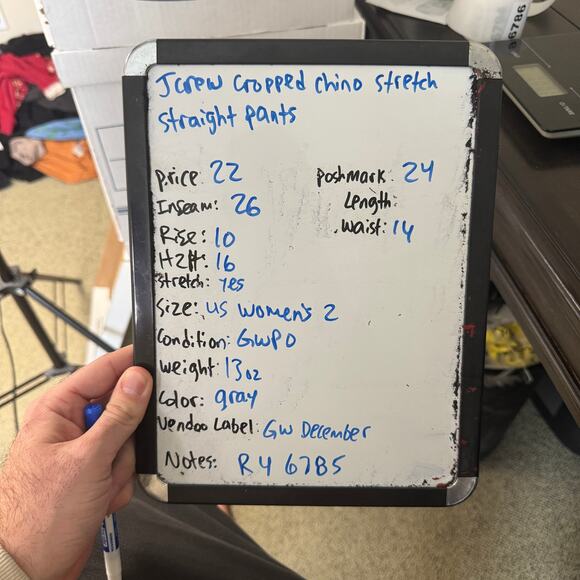 Jcrew Cropped chino stretch
straight pants
price: 22
poshmark: 24
Inseam: 26
Length:
Rise: 10
waist: 14
H2H: 16
stretch: yes
Size: US Women's 2
Condition: GWPO
weight: 13oz
Color: gray
Vendoo Label: GW December
Notes: R4 6785